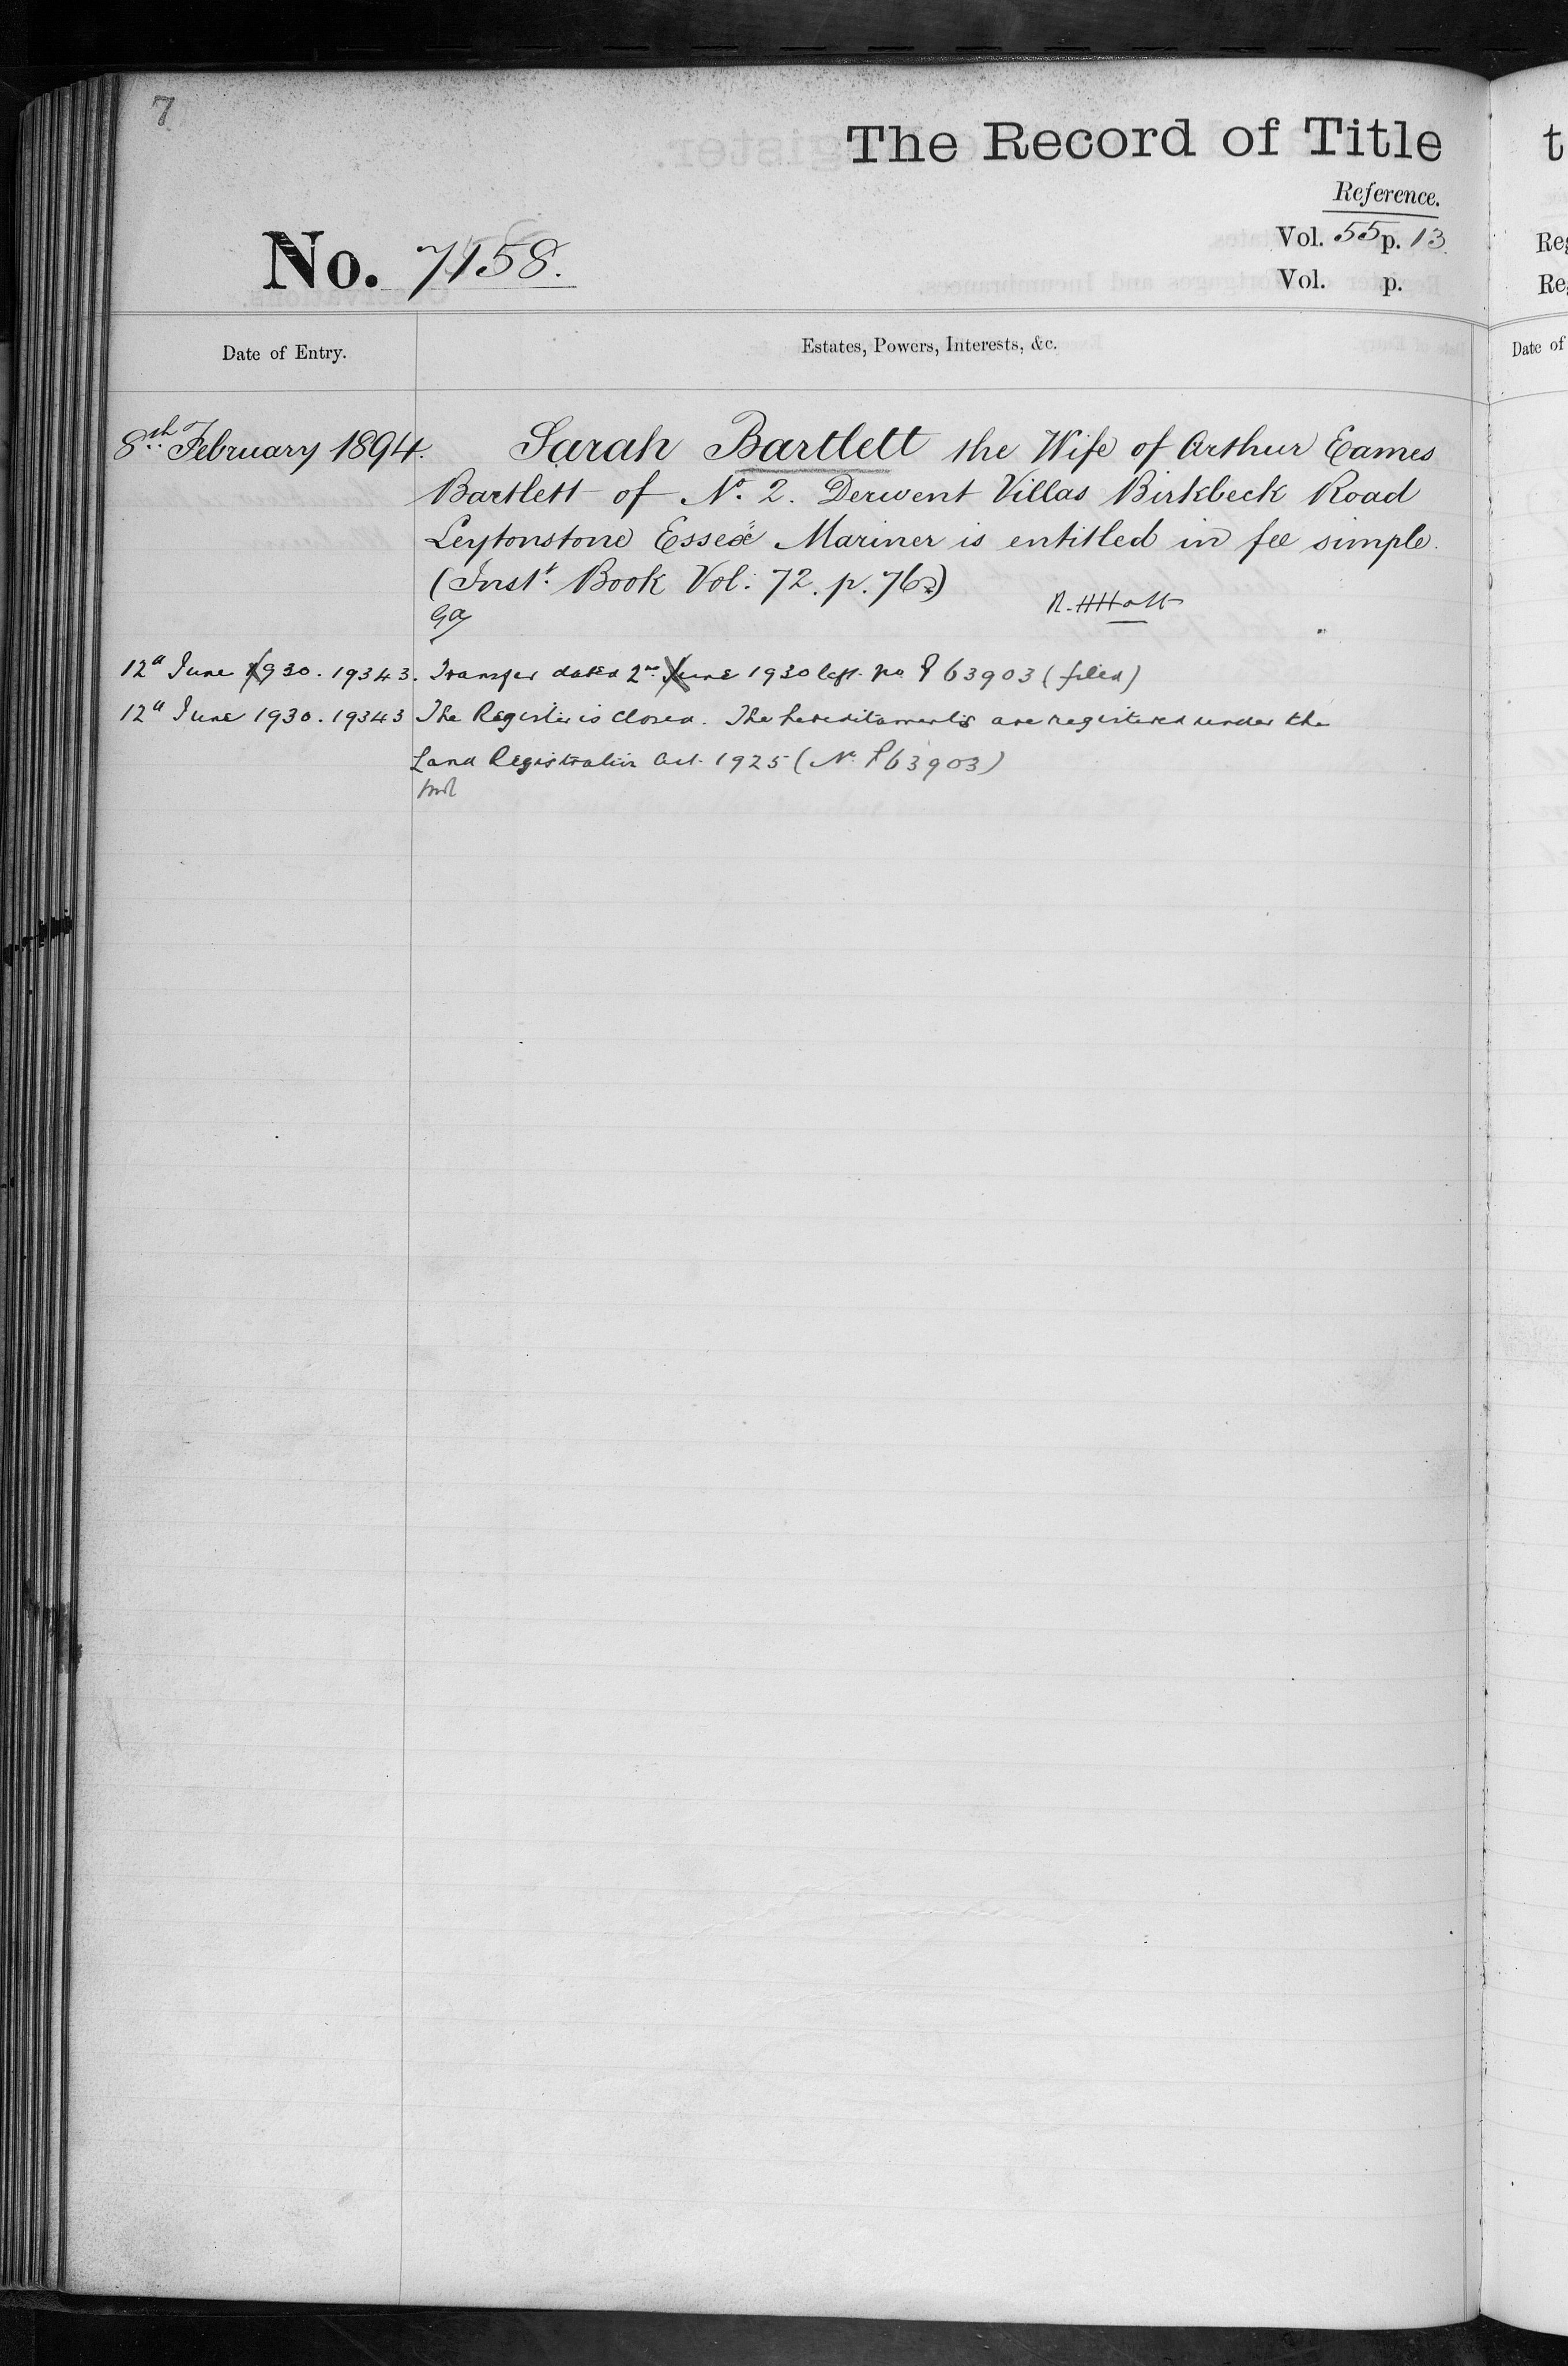 7
The Record of Title
Reference.
No. 7158.
Vol. 55 p. 13
Vol. p.
Date of Entry.
Estates, Powers, Interests, &c.
8th February 1894.
Sarah Bartlett the Wife of Arthur Eames
Bartlett of No. 2. Derwent Villas Birkbeck Road
Leytonstone Essex Mariner is entitled in fee simple.
(Inst. Book Vol. 72. p. 76)
12th June 1930. 19343. Transfer dated 2nd June 1930 No P63903 (filed)
12th June 1930. 19343 The Register is closed. The hereditaments are registered under the
Land Registration Act. 1925 (No P63903)
t
Reg
Re
Date of